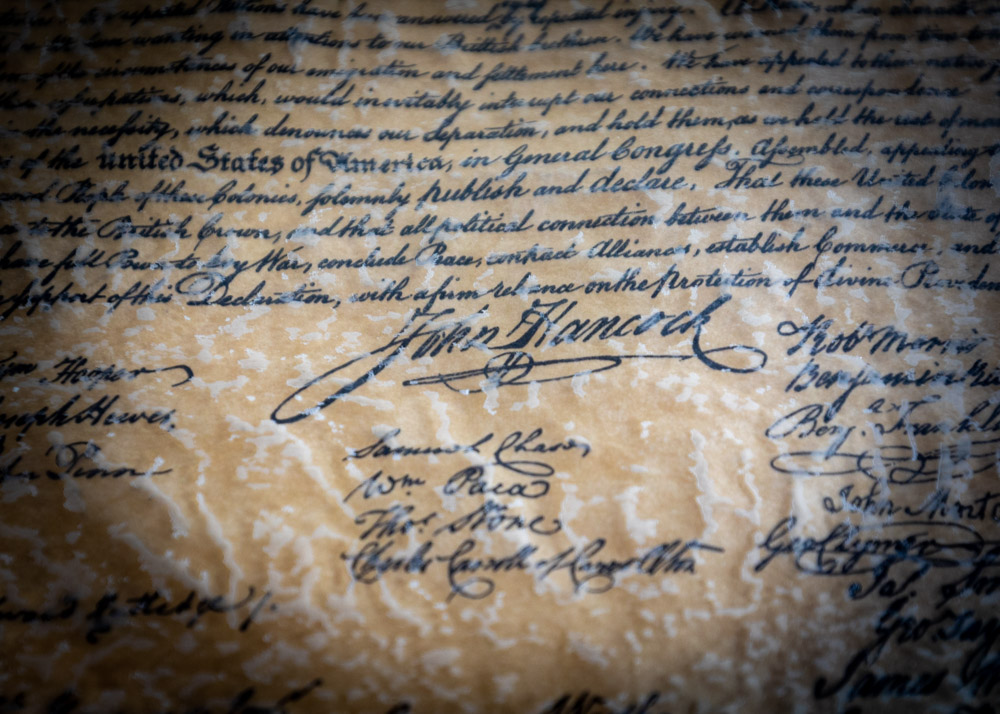 repeated Petitions have been answered by repeated injury.
wanting in attentions to our Brittish brethren. We have
of the circumstances of our emigration and settlement here. We have appealed to their native
usurpations, which, would inevitably interrupt our connections and correspondence
the necessity, which denounces our Separation, and hold them, as we hold the rest of
of the united States of America, in General Congress, Assembled, appealing
People of these Colonies, solemnly publish and declare, That these United
to the British Crown, and that all political connection between them and the State of
have full Power to levy War, conclude Peace, contract Alliances, establish Commerce, and
support of this Declaration, with a firm reliance on the Protection of divine
John Hancock
Robt Morris
Hooper
Benjamin
Joseph Hewes,
Benj. Franklin
Penn
Samuel Chase
Wm Paca
Thos. Stone
Charles Carroll of Carrollton
John Mort
Geo Clymer
Ja.
Geo. Tay
James